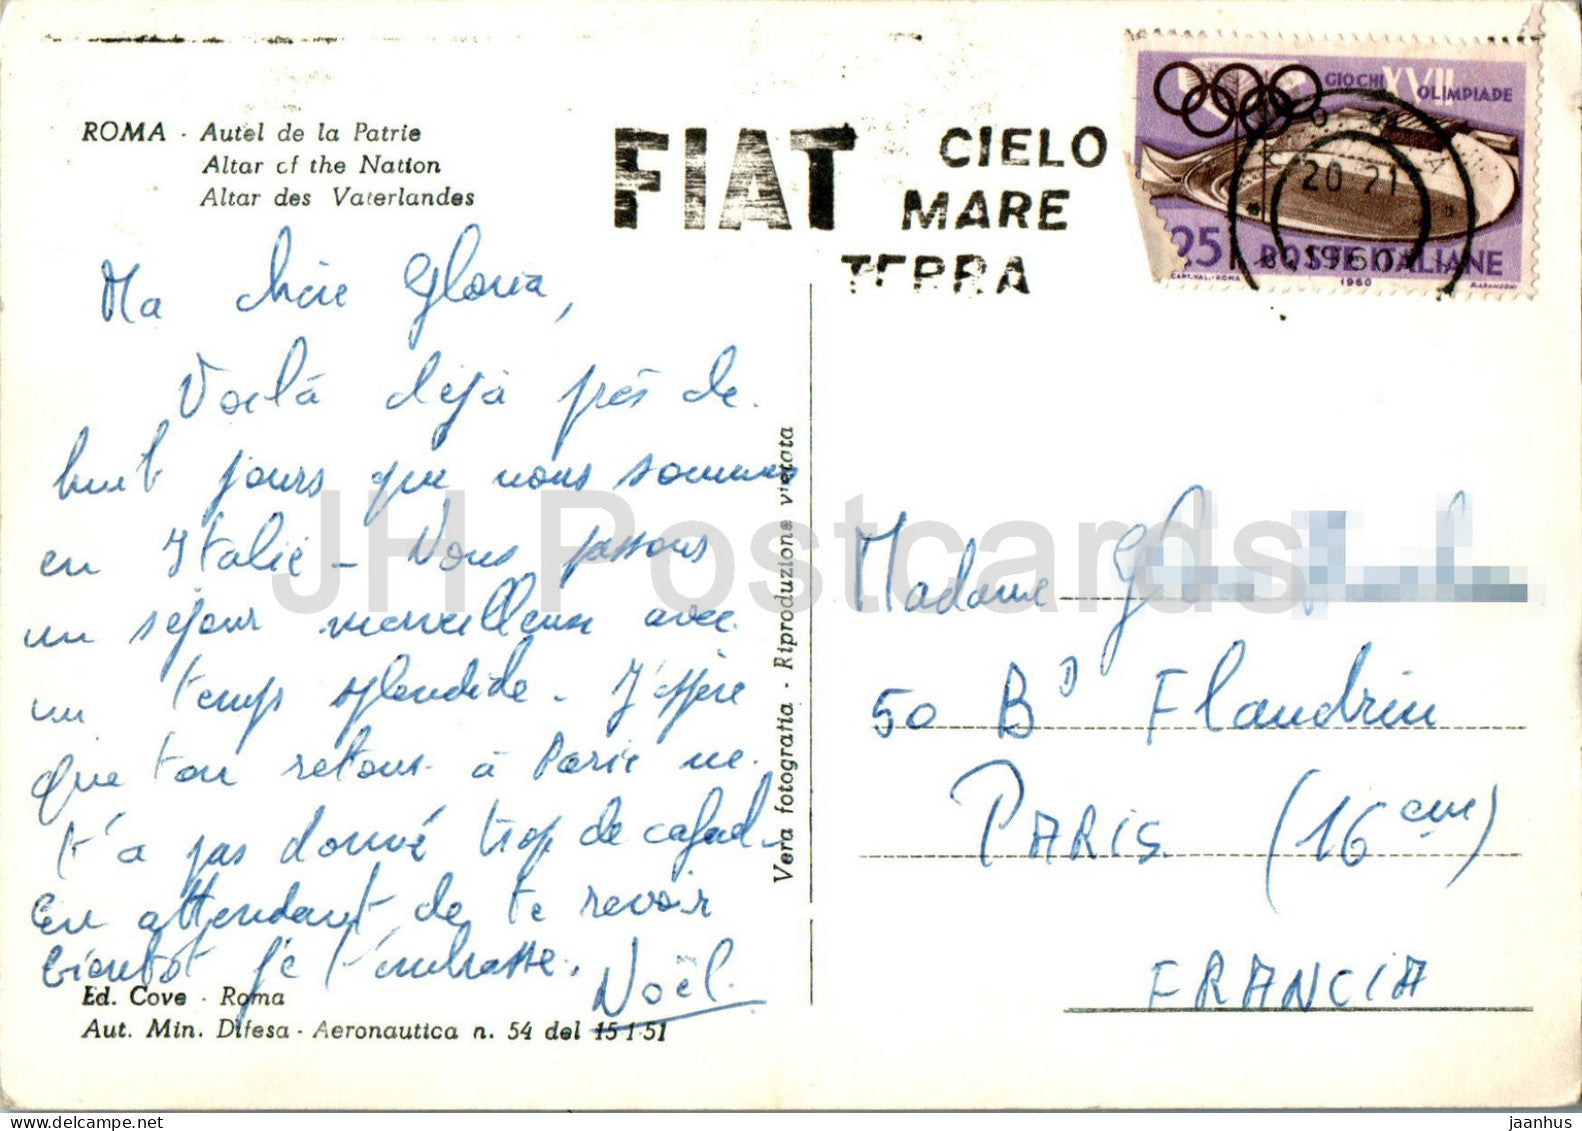 ROMA - Autel de la Patrie
Altar of the Nation
Altar des Vaterlandes
FIAT CIELO
MARE
TERRA
GIOCHI XVII
OLIMPIADE
20 21
1960
25
POSTE ITALIANE
CART.VAL.-ROMA 1960
Ma chère Gloria,
Voilà déjà près de
huit jours que nous sommes
en Italie - Nous passons
un séjour merveilleux avec
un temps splendide - J'espère
que ton retour à Paris ne
t'a pas donné trop de cafard -
En attendant de te revoir
bientôt je t'embrasse.
Noël.
Vera fotografia - Riproduzione vietata
Madame
50 Bd Flandrin
PARIS (16 eme)
FRANCIA
Ed. Cove - Roma
Aut. Min. Difesa - Aeronautica n. 54 del 15-1-51
JH Postcards
jaanhus